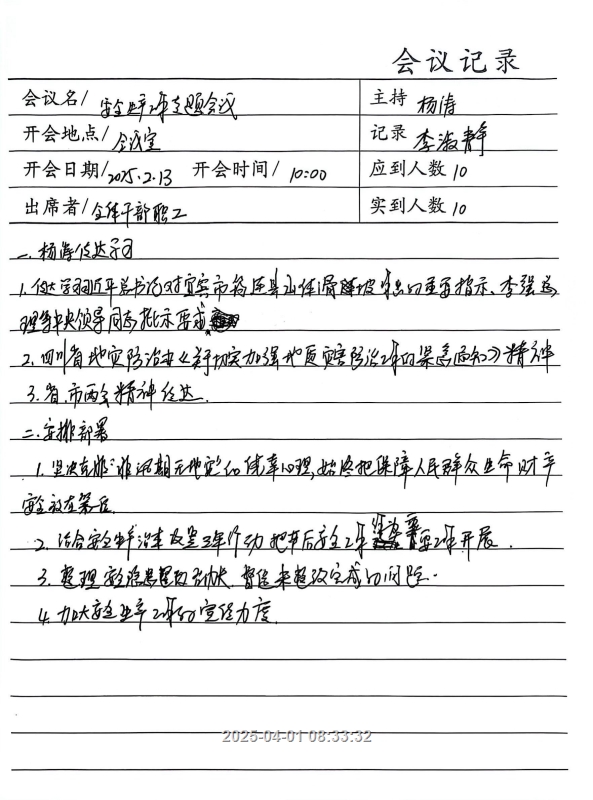 会议记录
会议名/安全生产工作专题会议 主持 杨涛
开会地点/会议室 记录 李淑静
开会日期/2025.2.13 开会时间/10:00 应到人数 10
出席者/全体干部职工 实到人数 10
一.杨涛传达学习
1.传达学习近平总书记对宜宾市筠连县山体滑坡作出的重要指示、李强总
理等中央领导同志批示要求
2.四川省地灾防治办《关于切实加强地质灾害防治工作的紧急通知》精神
3.省、市两会精神传达.
二.安排部署
1.坚决克服"非汛期无地灾"的侥幸心理,始终把保障人民群众生命财产
安全放在第一位.
2.结合安全生产治本攻坚三年行动把节后安全工作 工作开展.
3.整理 未整改完成的问题.
4.加大安全生产工作的宣传力度.
2025-04-01 08:33:32